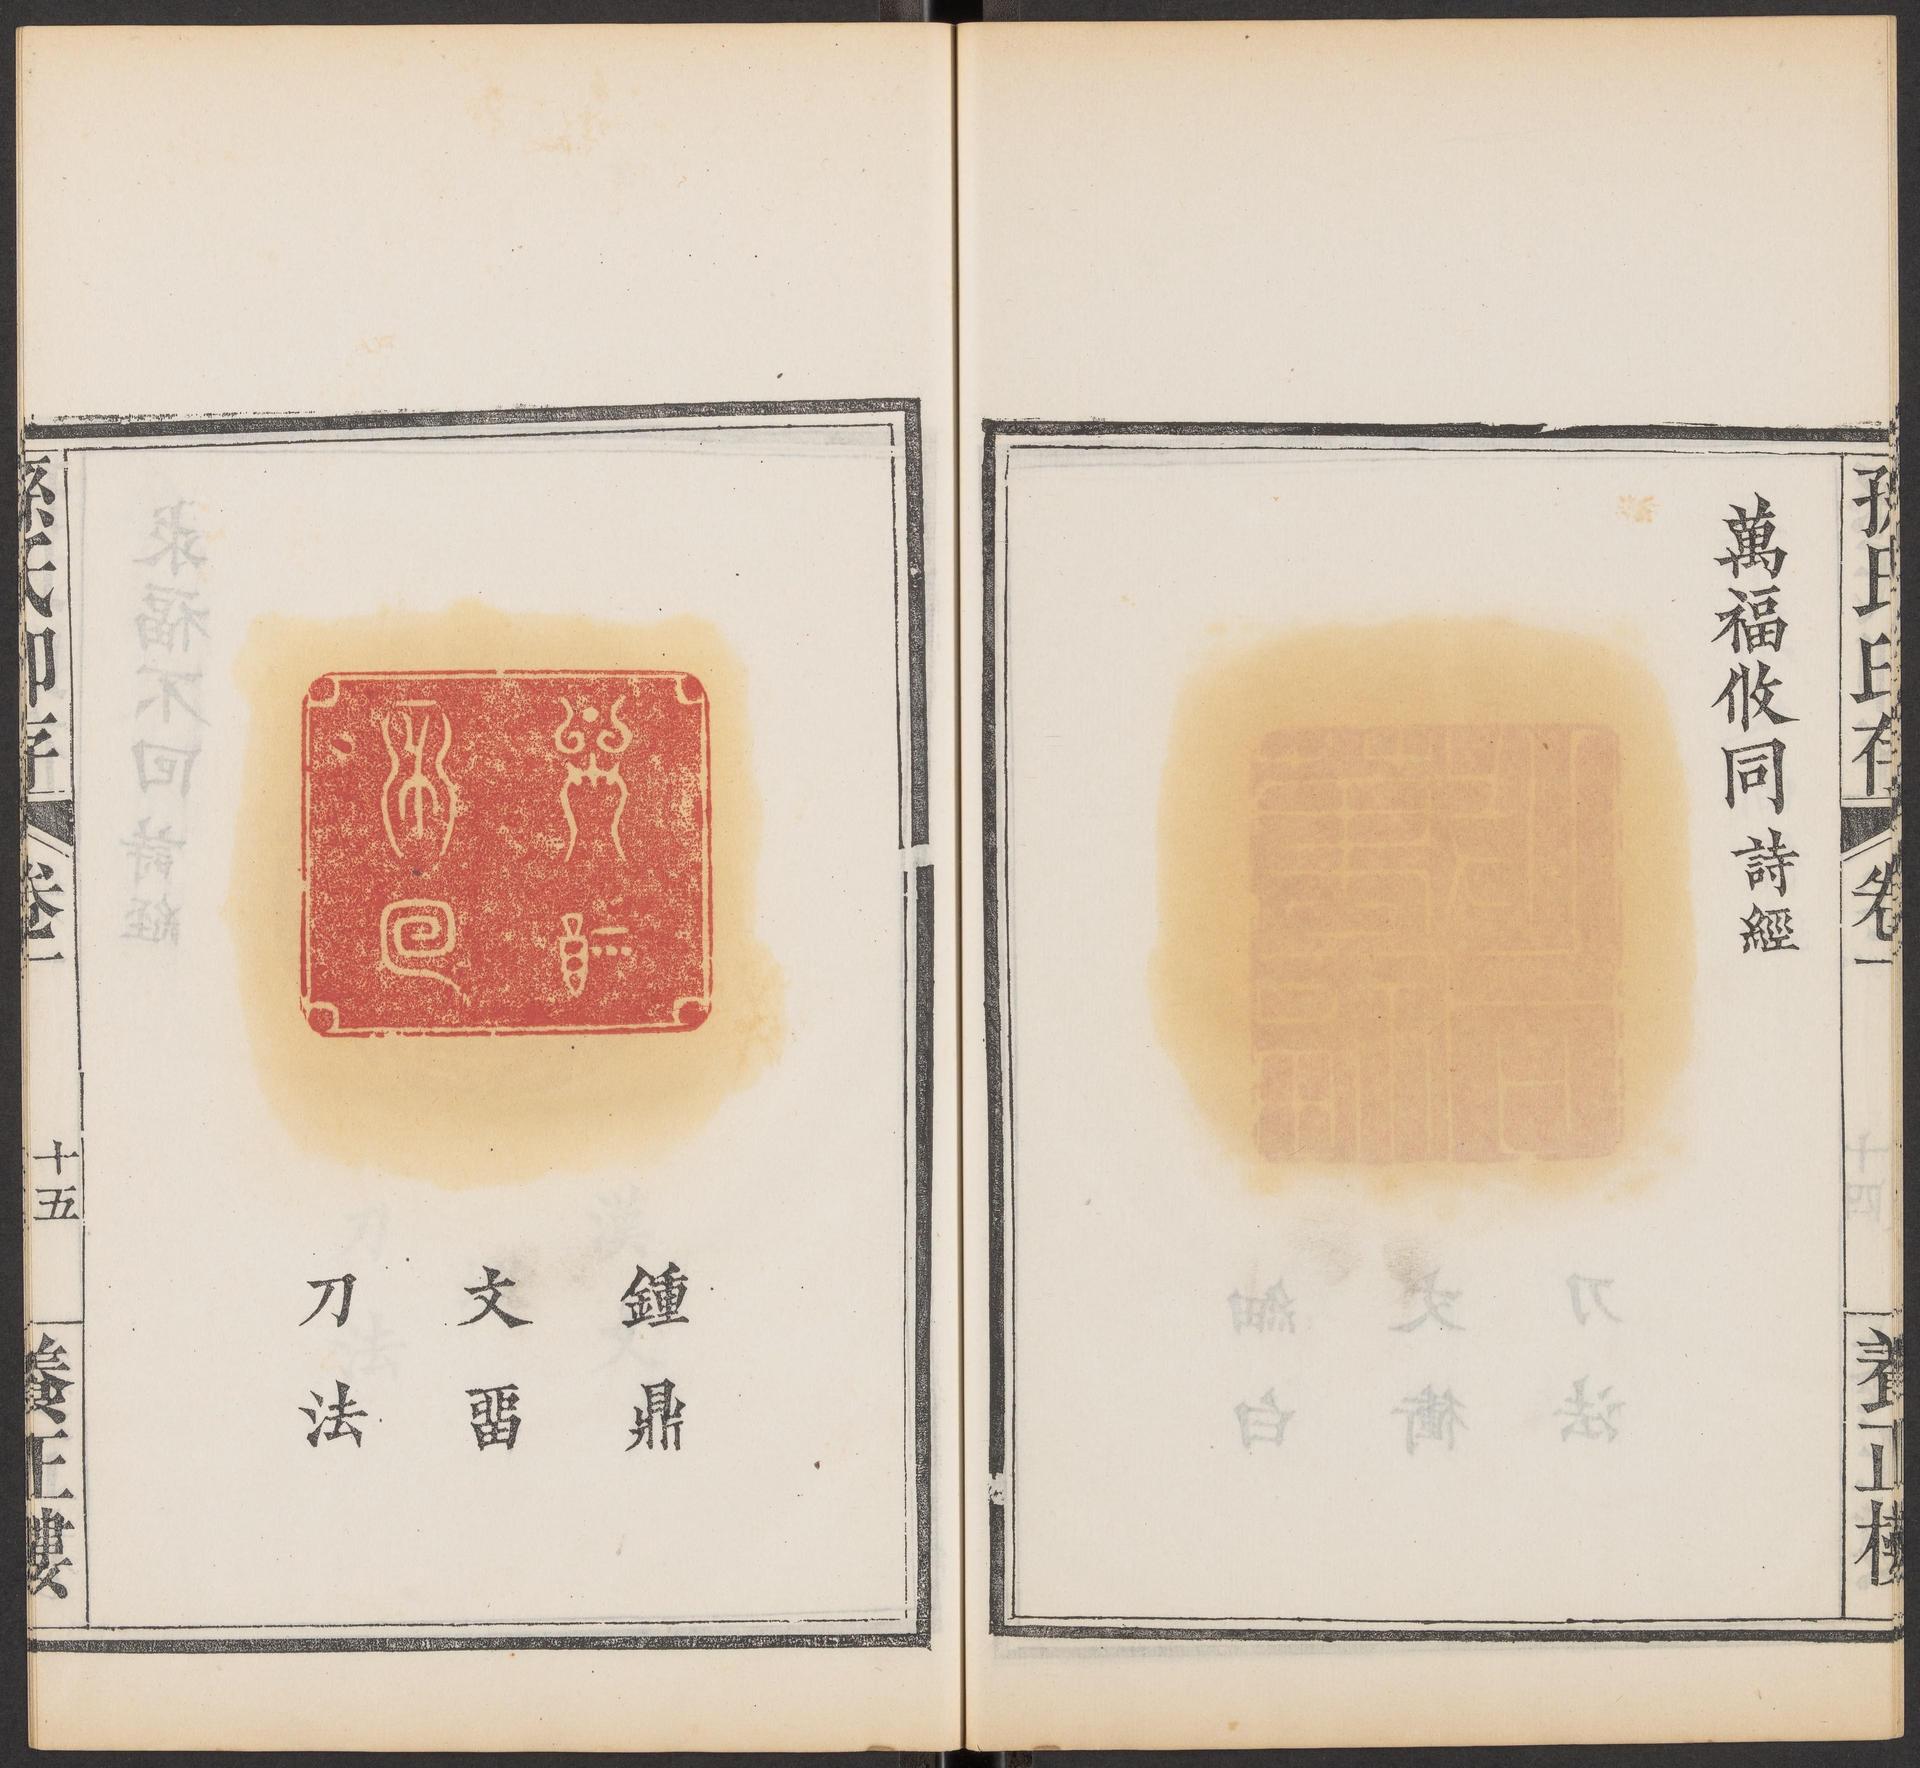 孫氏印存 卷一
養正樓
萬福攸同 詩經
鍾鼎
文畱
刀法
孫氏印存 卷一
十五
養正樓